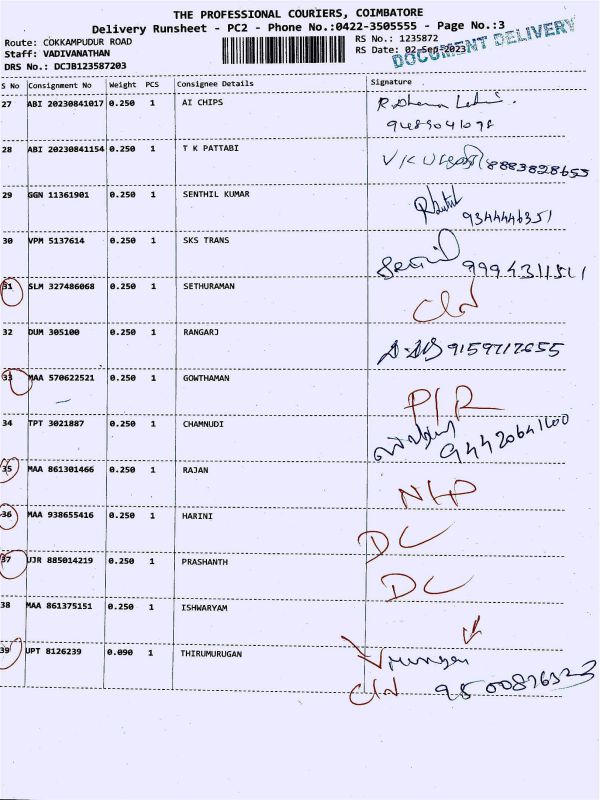 THE PROFESSIONAL COURIERS, COIMBATORE
Delivery Runsheet - PC2 - Phone No.:0422-3505555 - Page No.:3
Route: COKKAMPUDUR ROAD RS No.: 1235872
Staff: VADIVANATHAN RS Date: 02-Sep-2023
DOCUMENT DELIVERY
DRS No.: DCJB123587203
S No Consignment No Weight PCS Consignee Details Signature
27 ABI 20230841017 0.250 1 AI CHIPS
28 ABI 20230841154 0.250 1 T K PATTABI 8883828655
29 GGN 11361901 0.250 1 SENTHIL KUMAR
9344446351
30 VPM 5137614 0.250 1 SKS TRANS
9994311511
31 SLM 327486068 0.250 1 SETHURAMAN
32 DUM 305100 0.250 1 RANGARJ 9159717655
33 MAA 570622521 0.250 1 GOWTHAMAN P/R
34 TPT 3021887 0.250 1 CHAMNUDI
94420641600
35 MAA 861301466 0.250 1 RAJAN
36 MAA 938655416 0.250 1 HARINI DC
37 UJR 885014219 0.250 1 PRASHANTH DC
38 MAA 861375151 0.250 1 ISHWARYAM
39 UPT 8126239 0.090 1 THIRUMURUGAN
9500876323